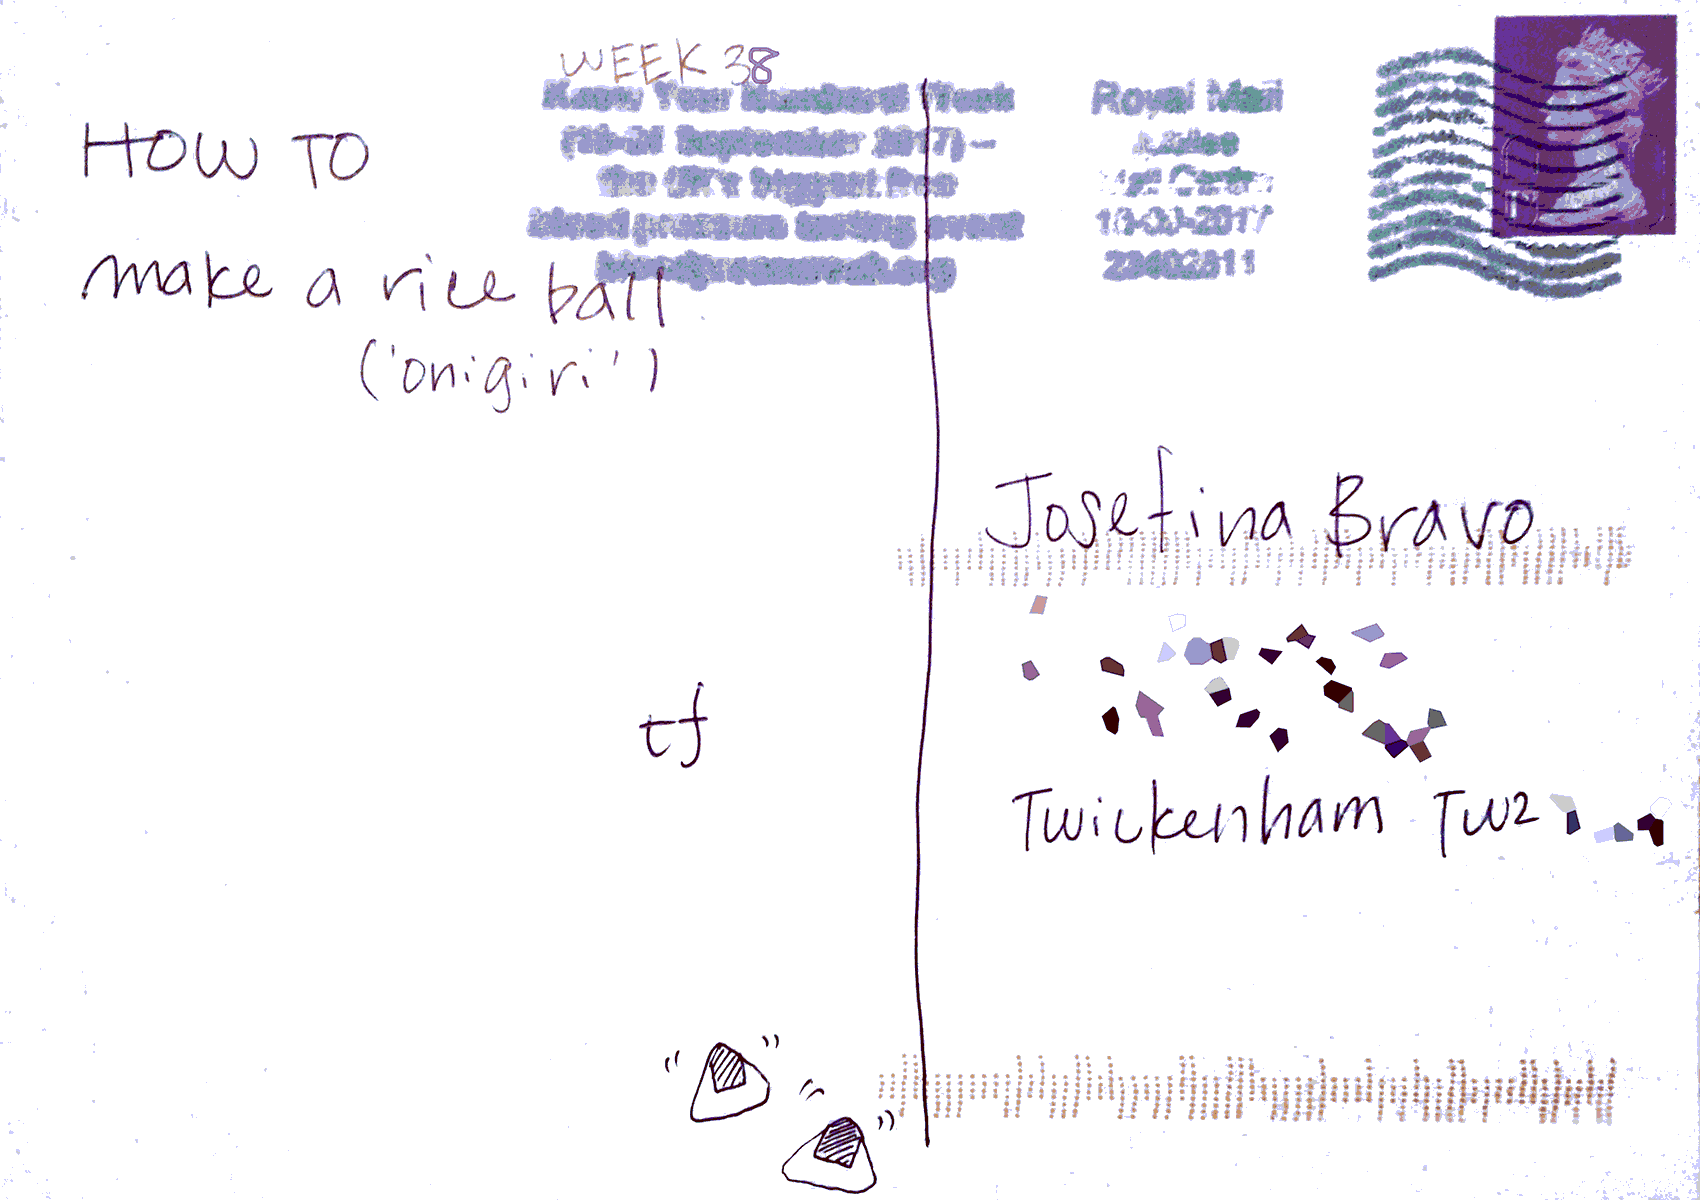 WEEK 38
HOW TO
make a rice ball
('onigiri')
tf
Know Your Numbers! Week
September 2017) –
The UK's biggest free
blood pressure testing event
Royal Mail
Jubilee
Mail Centre
2017
Josefina Bravo
Twickenham TW2